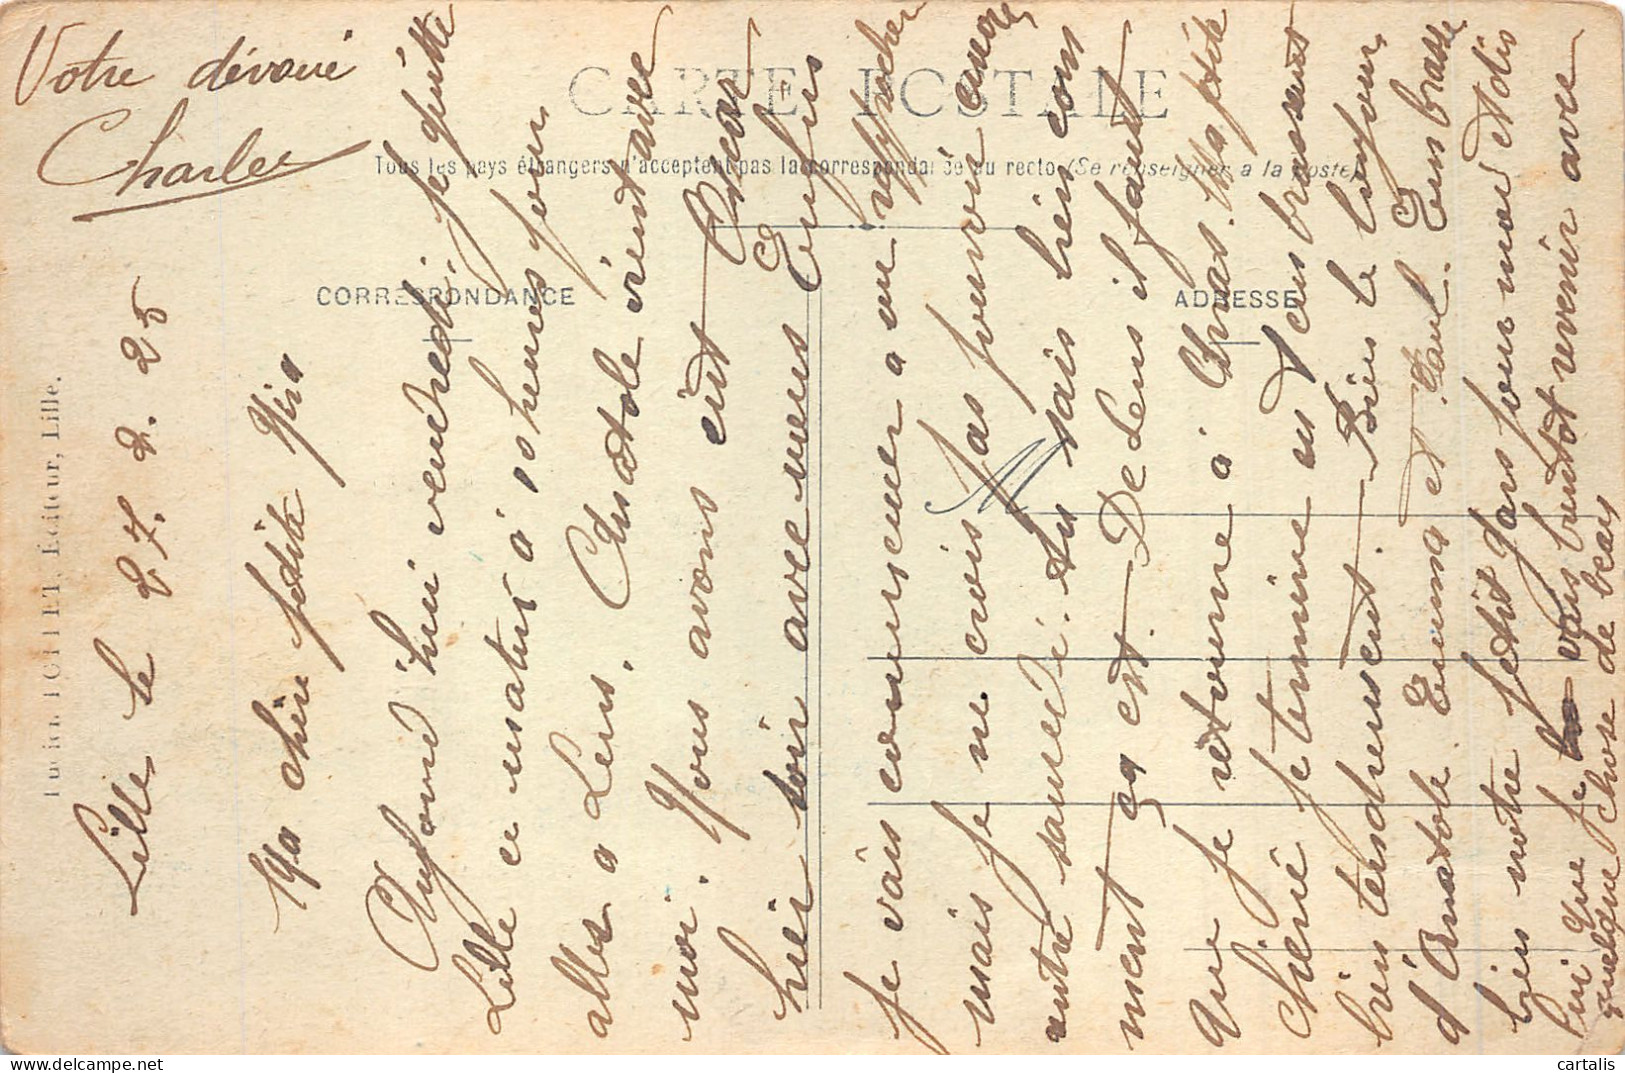 Votre dévoué
Charles
CARTE POSTALE
Tous les pays étrangers n'acceptent pas la correspondance au recto (Se renseigner a la poste)
CORRESPONDANCE
ADRESSE
Éditeur, Lille.
Lille le 27. 2. 25
Ma chère petite
Aujourd'hui vendredi, je quitte
Lille ce matin à 10 heures pour
aller a Lens. Anatole vient avec
moi. Nous avons été
hier soir avec mes Enfin
je vais commencer a me rapprocher
mais je ne crois pas pouvoir encore
entre samedi. tu sais bien com
ment ça est. De Lens il faut
que je retourne à Arras. Ma petite
chérie je termine en t'embrassant
bien tendrement. Bien le bonjour
d'Anatole. Emma et Paul. Embrasse
bien notre petit gars pour moi et dis
lui que je vais bientôt revenir avec
quelque chose de beau
cartalis